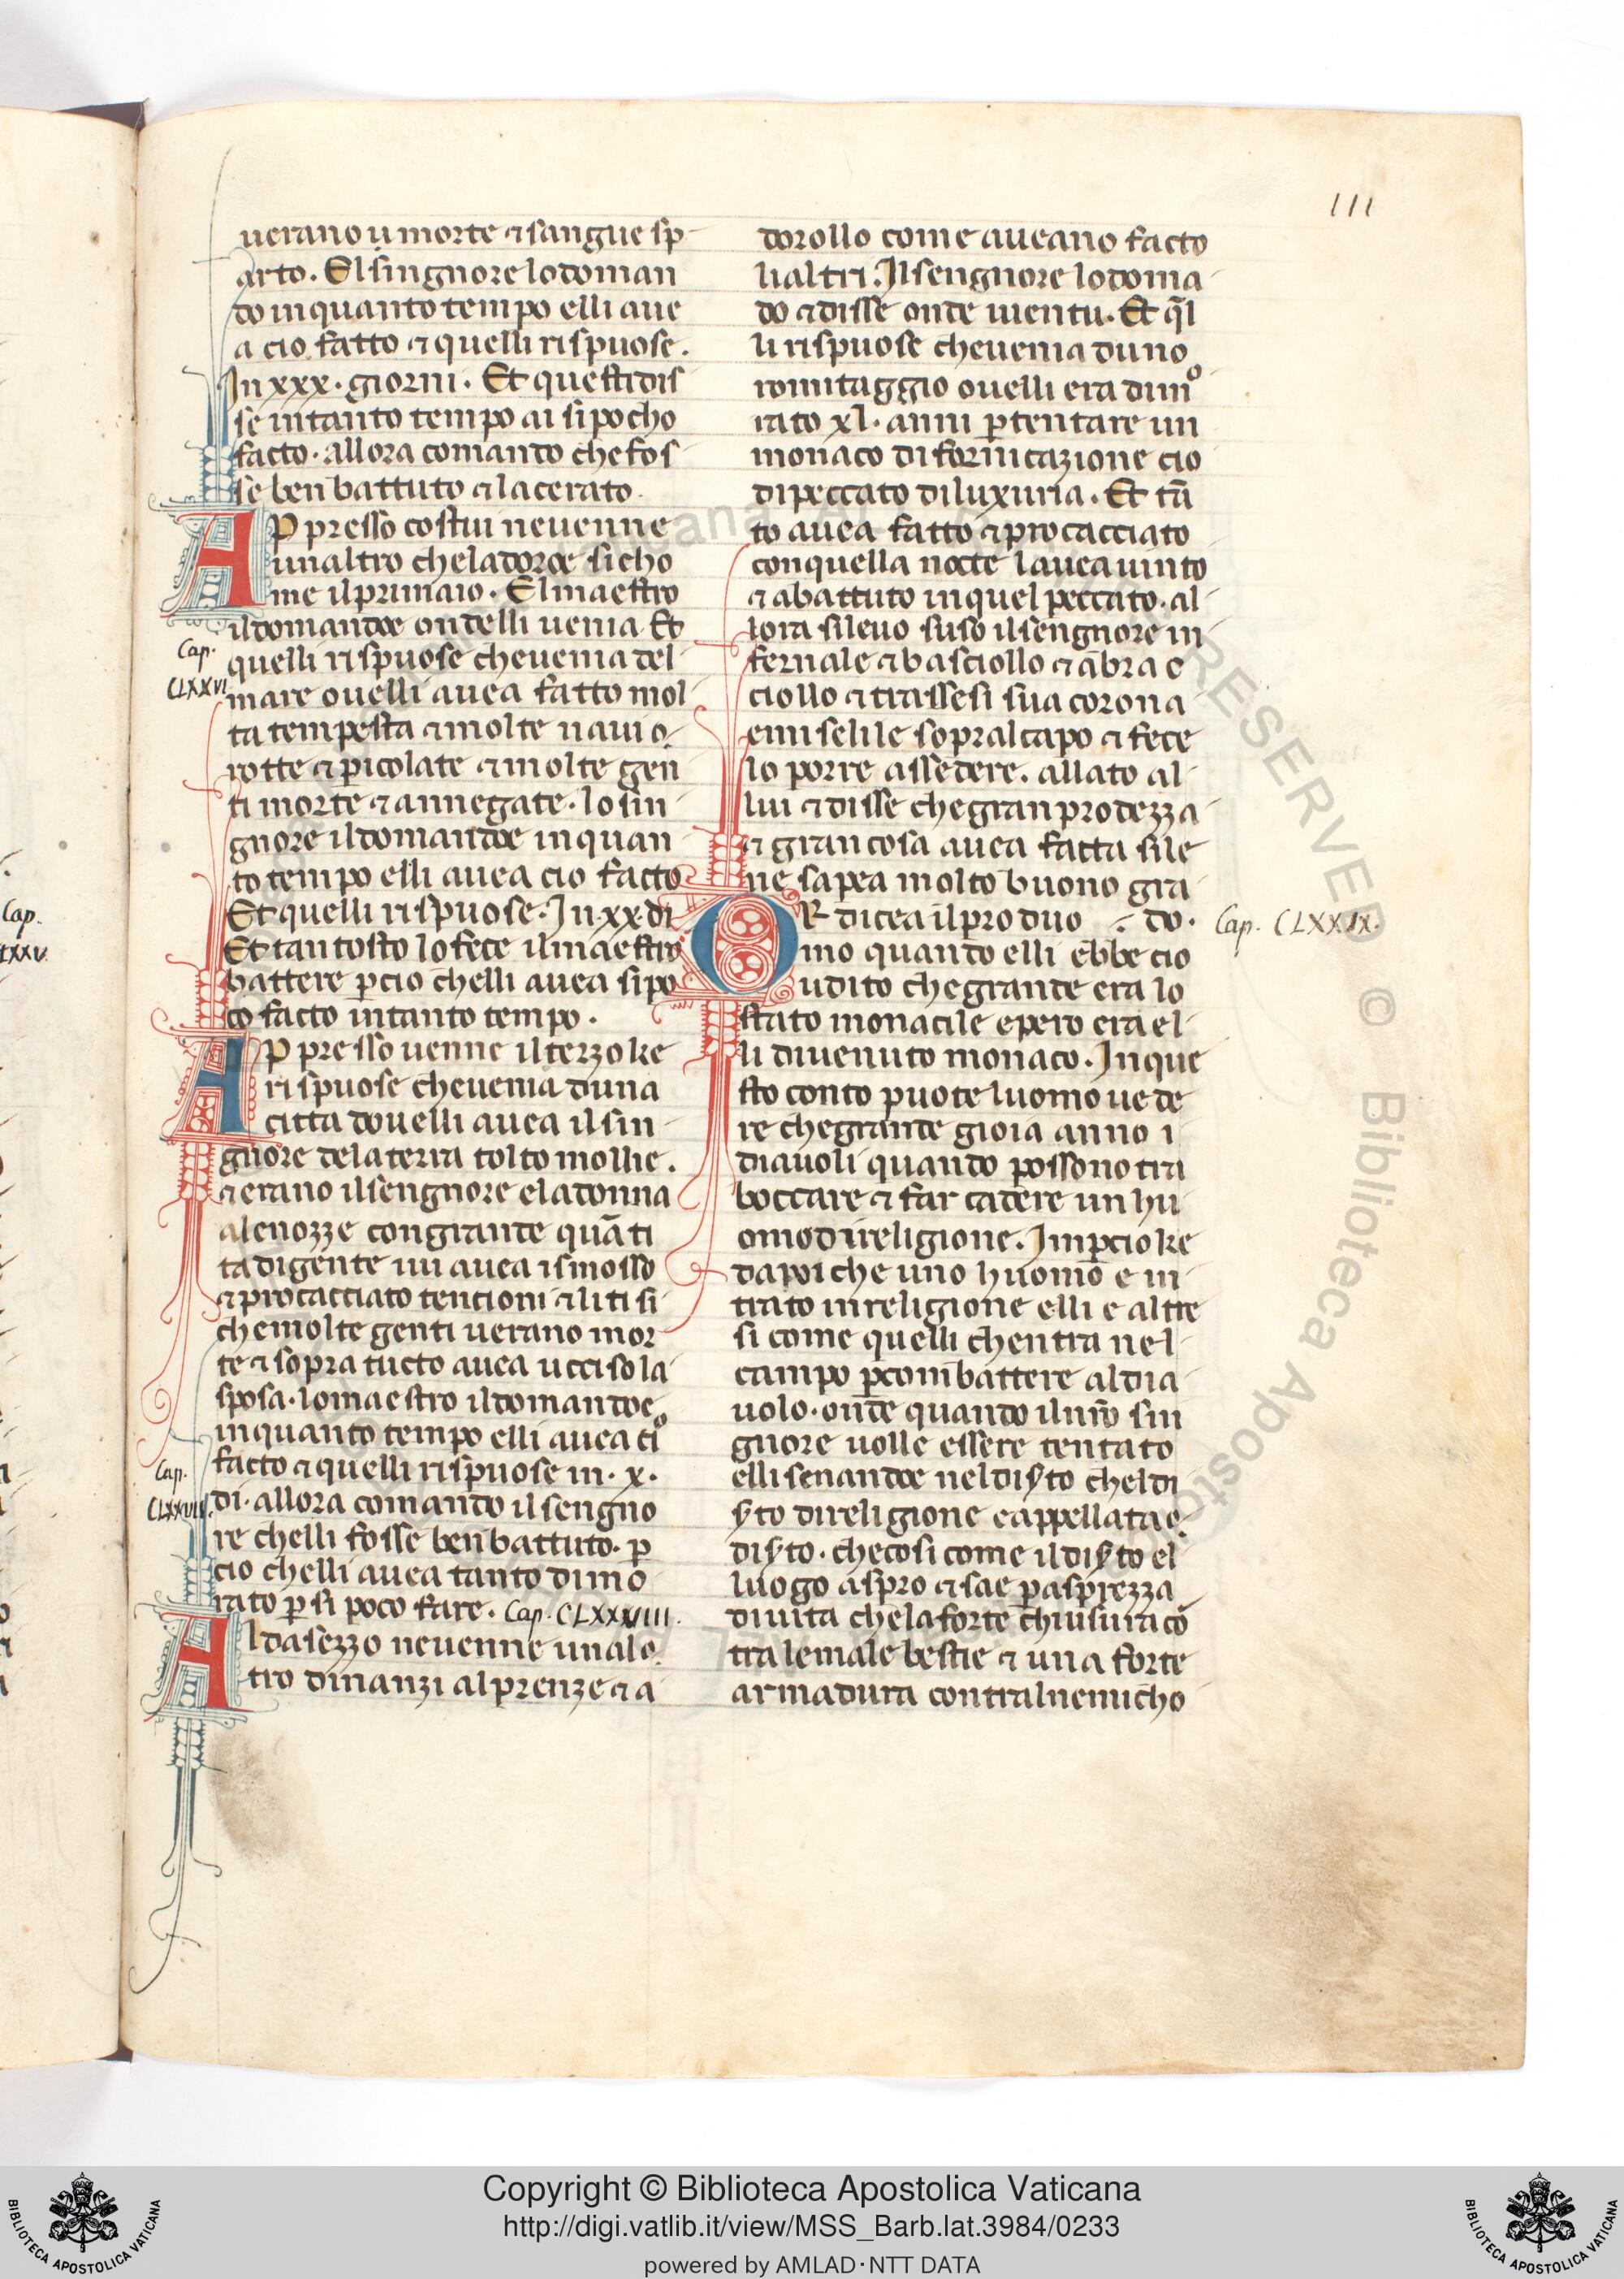 111
uerano ij morte ⁊ sangue sp
arto. El singnore lo doman
do in quanto tempo elli aue
a cio fatto ⁊ quelli rispuose.
In xxx. giorni. Et questi dis
se in tanto tempo ai si pocho
facto. allora comando che fos
se ben battuto ⁊ lacerato.
APpresso costui ne uenne
un altro che ladoroe si cho
me il primaio. El maestro
il domandoe ondelli uenia Et
Cap.
CLXXVI
quelli rispuose che uenia del
mare ouelli auea fatto mol
ta tempesta ⁊ molte naui
rotte ⁊ p̱icolate ⁊ molte gen
ti morte ⁊ annegate. lo sin
gnore il domandoe in quan
to tempo elli auea cio facto
Et quelli rispuose. In .xx. di
Et tantosto lo fece il maestro
battere p̱cio chelli auea si po
co facto in tanto tempo.
APpresso uenne il terzo ke
rispuose che uenia duna
citta douelli auea il sin
gnore dela terra tolto mollie.
⁊ erano il sengnore e la donna
a le nozze con grande quãti
ta di gente iui auea ismosso
⁊ procacciato tencioni ⁊ liti si
che molte genti uerano mor
te ⁊ sopra tucto auea ucciso la
sposa. lo maestro il domandoe
in quanto tempo elli auea ciº
facto ⁊ quelli rispuose in .x.
Cap.
CLXXVII.
di. allora comando il sengno
re chelli fosse ben battuto. p̱
cio chelli auea tanto dimo
rato p̱ si poco fare. Cap. CLXXVIII.
Al dasezzo ne uenne un al
tro dinanzi al prenze ⁊ a
dorollo come aueano facto
li altri. Il sengnore lo doma
do ⁊ disse onde uien tu. Et q̃l
li rispuose che uenia duno
romitaggio ouelli era dimº
rato xl. anni p̱ tentare un
monaco di fornicazione cio
di peccato di luxuria. Et tã
to auea fatto ⁊ procacciato
con quella nocte lauea uinto
⁊ abattuto in quel peccato. al
lora si leuo suso il sengnore in
fernale ⁊ basciollo ⁊ ãbrac
ciollo ⁊ trassesi sua corona
emiselile sopral capo ⁊ fece
lo porre assedere. allato al
lui ⁊ disse che gran prodezza
⁊ gran cosa auea facta si le
ne sapea molto buono gra
do.
OR dicea il produo
Cap. CLXXIX.
mo quando elli ebbe cio
udito che grande era lo
stato monacile e pero era el
li diuenuto monaco. In que
sto conto puote luomo uede
re che grande gioia anno i
diauoli quando possono tra
boccare ⁊ far cadere un hu
omo di religione. Imp̱cio ke
dapoi che uno huomo e in
trato in religione elli e altre
si come quelli chentra nel
campo p̱ combattere al dia
uolo. onde quando il nr̃o sin
gnore uolle essere tentato
elli senandoe nel disʼto chel di
sʼto di religione e appellata
disʼto. che cosi come il disʼto el
luogo aspro ⁊ sae p̱ asprezza
di uita che la forte chiusura cõ
tra le male bestie ⁊ una forte
armadura contral nemicho
Cap.
LXXV.
RESERVED © Biblioteca Apostolica Vaticana
Copyright © Biblioteca Apostolica Vaticana
http://digi.vatlib.it/view/MSS_Barb.lat.3984/0233
powered by AMLAD·NTT DATA
BIBLIOTECA APOSTOLICA VATICANA
BIBLIOTECA APOSTOLICA VATICANA